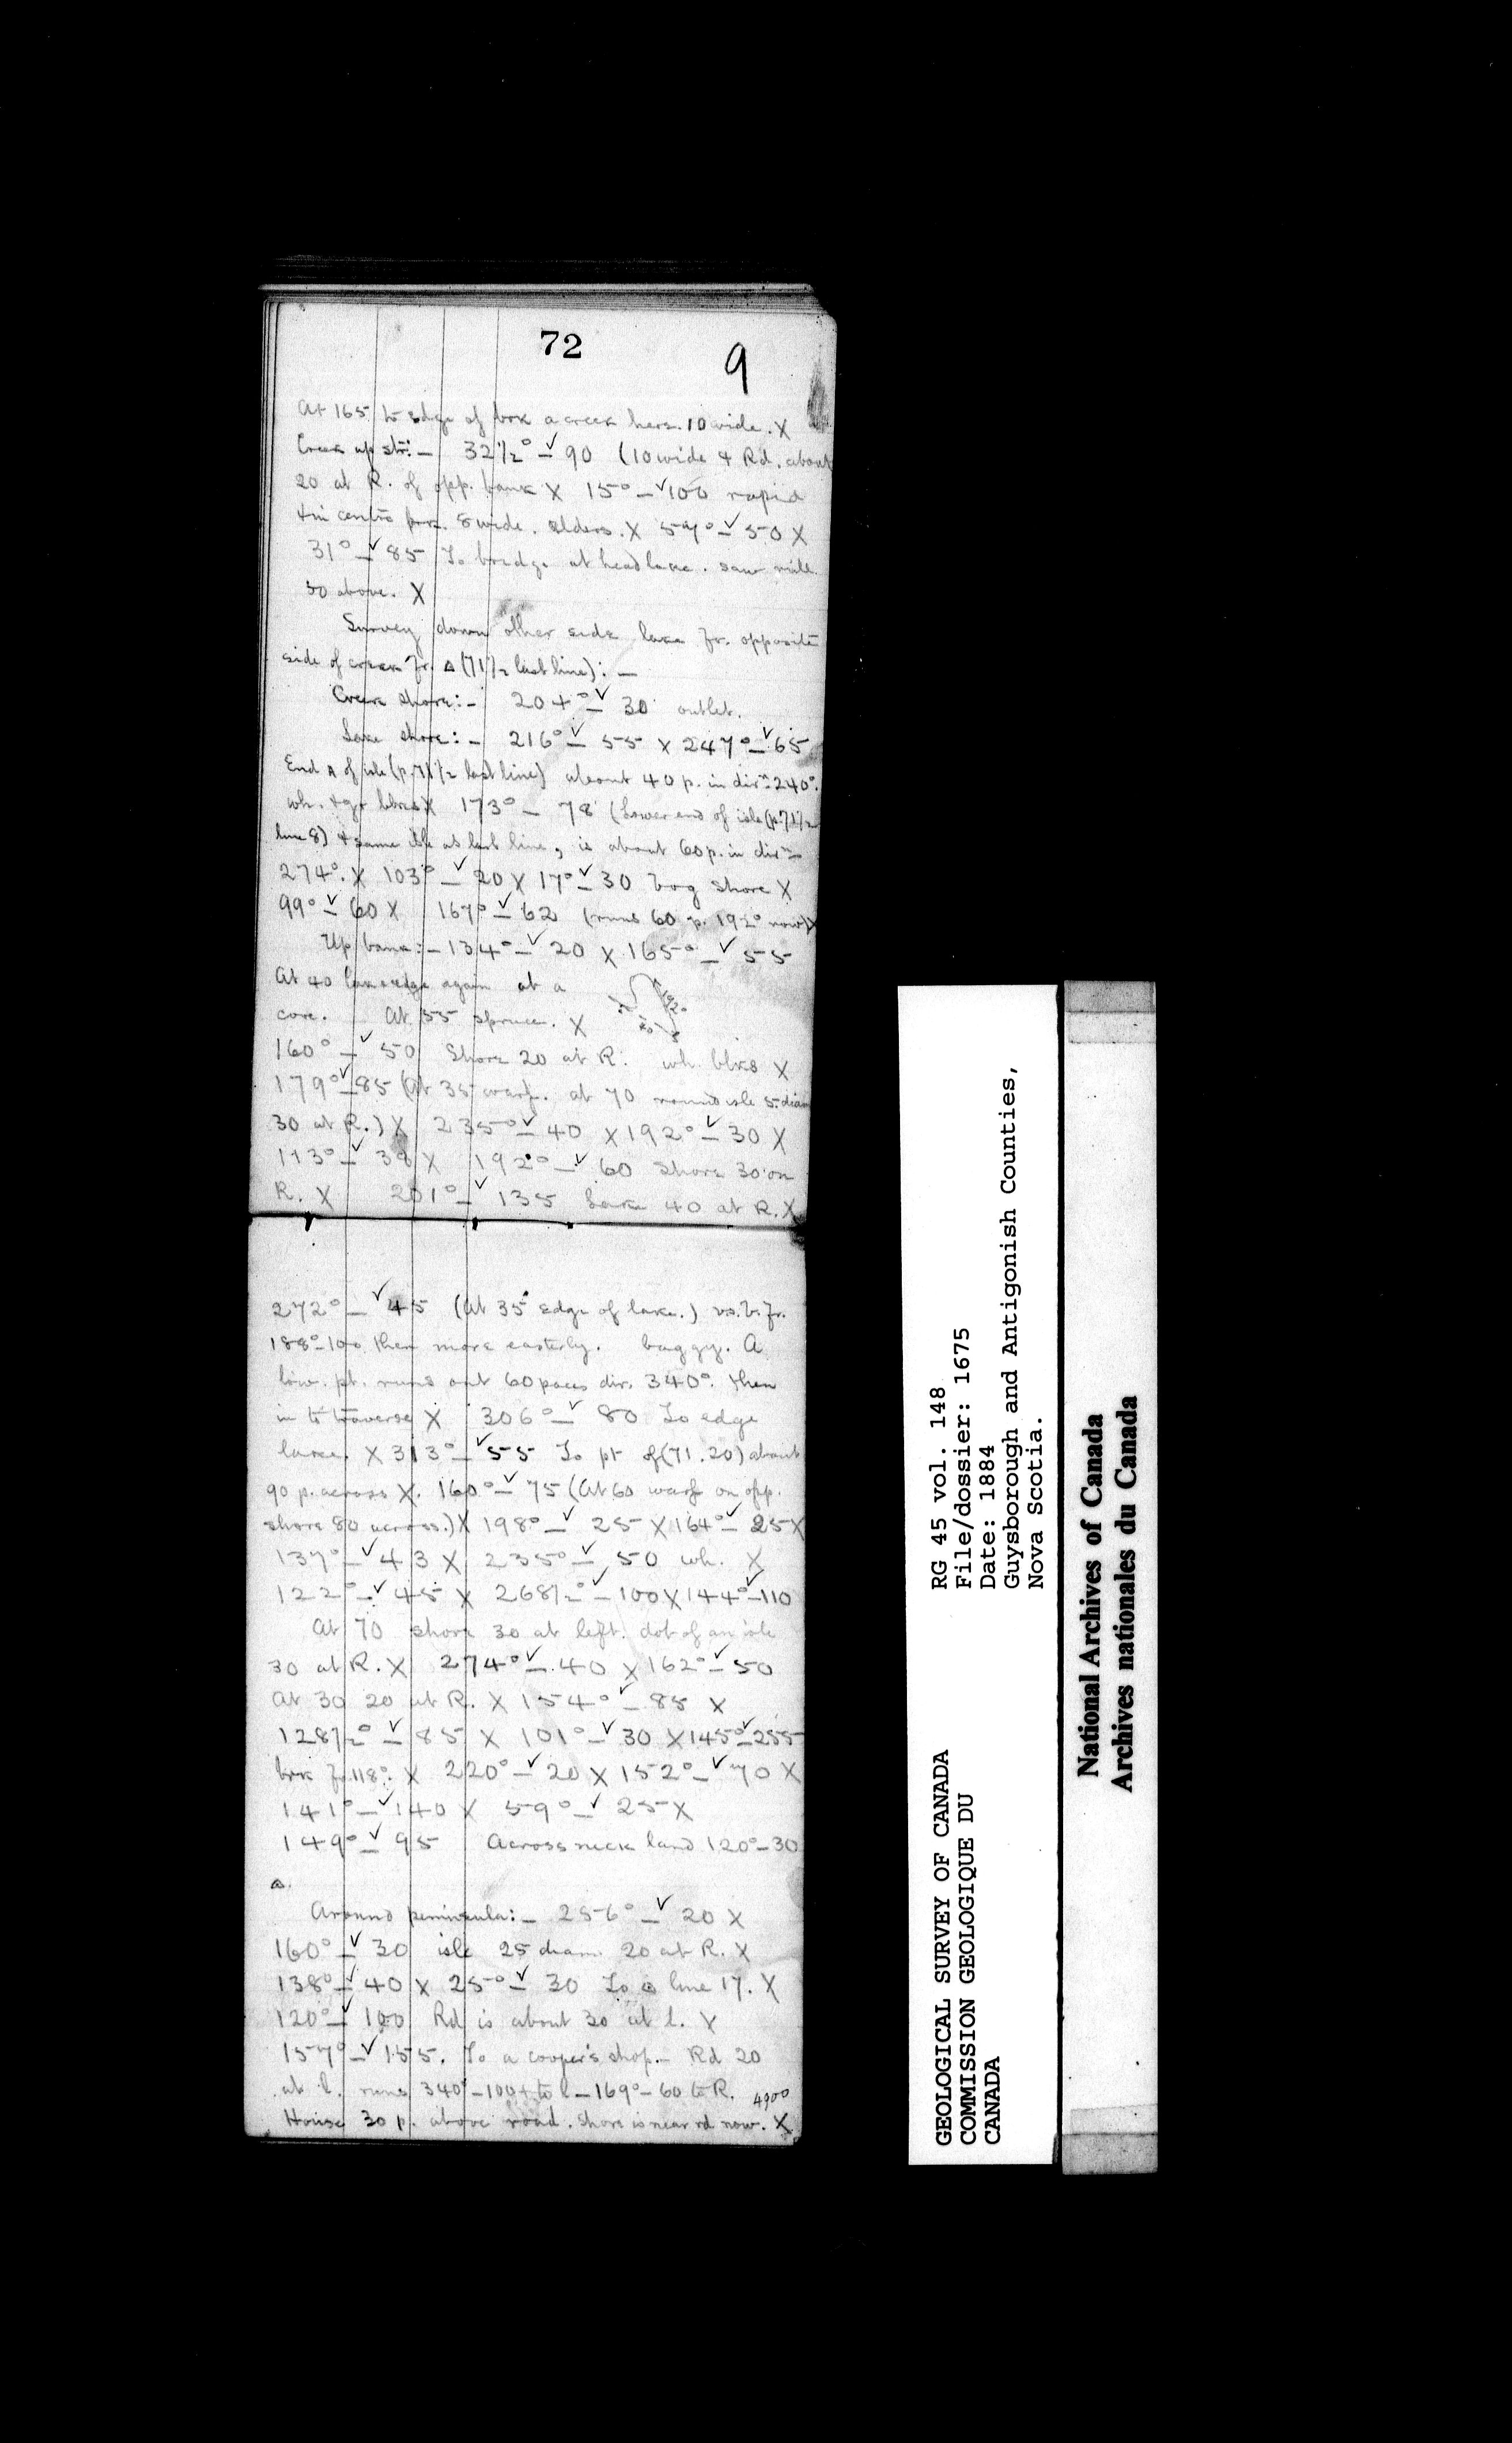 72
9
At 165 to edge of brk a creek here. 10 wide. X
Creek up str:— 32½° — ✓90 (10 wide & Rd. about
20 at R. of opp. bank X 15° — ✓100 rapid
8 wide. alders. X 57° — ✓50 X
31° — ✓85 To bridge at head lake. saw mill
50 above. X
Survey down other side lake fr. opposite
side of creek fr. △ (71½ last line): —
Creek shore:— 204° — ✓30 outlet.
Lake shore:— 216° — ✓55 X 247° — ✓65
End of isle (p. 71½ last line) about 40 p. in dirn 240°.
wh. & gr blks X 173° — 78 (Lower end of isle (p. 71½
line 8) & same isle as last line, is about 60 p. in dirn
274°. X 103° — ✓20 X 17° — ✓30 bog shore X
99° — ✓60 X 167° — ✓62 (runs 60 p. 192° now) X
Up bank:— 134° — ✓20 X 165° — ✓55
At 40 lake edge again at a
cove. At 55 spruce. X
192°
40
160° — ✓50 Shore 20 at R. wh. blks X
179° — ✓85 (At 35 warf. at 70 round isle 5 diam
30 at R.) X 235° — ✓40 X 192° — ✓30 X
113° — ✓38 X 192° — ✓60 Shore 30 on
R. X 201° — ✓135 Lake 40 at R. X
272° — ✓45 (At 35 edge of lake.) fr.
188° — 100 then more easterly. A
low. pt. runs out 60 paces dir. 340°. then
in to traverse X 306° — ✓80 To edge
lake. X 313° — ✓55 To pt of (71.20) about
90 p. across X. 160° — ✓75 (At 60 warf on opp.
shore 80 across.) X 198° — ✓25 X 164° — ✓25 X
137° — ✓43 X 235° — ✓50 wh. X
122° — ✓45 X 268½° — ✓100 X 144° — ✓110
At 70 shore 30 at left. dot of an isle
30 at R. X 274° — ✓40 X 162° — ✓50
At 30 20 at R. X 154° — ✓85 X
128½° — ✓85 X 101° — ✓30 X 145° — ✓255
brk fr. 118°. X 220° — ✓20 X 152° — ✓70 X
141° — ✓140 X 59° — ✓25 X
149° — ✓95 Across neck land 120° — 30
△.
Around peninsula:— 256° — ✓20 X
160° — ✓30 isle 25 diam. 20 at R. X
138° — ✓40 X 25° — ✓30 To △ line 17. X
120° — ✓100 Rd is about 30 at l. X
157° — ✓155. To a cooper's shop.— Rd 20
at l. runs 340° — 100 + to l — 169° — 60 to R. 4900
House 30 p. above road. Shore is near rd now. X
GEOLOGICAL SURVEY OF CANADA
COMMISSION GEOLOGIQUE DU
CANADA
RG 45 vol. 148
File/dossier: 1675
Date: 1884
Guysborough and Antigonish Counties,
Nova Scotia.
National Archives of Canada
Archives nationales du Canada